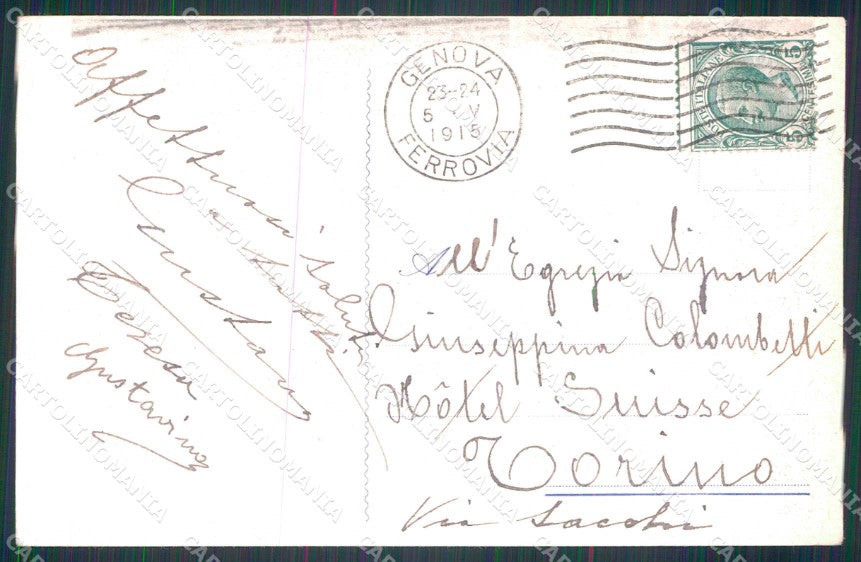 Affettuosi saluti
a tutti
Gustavo
Teresa
Gustavino
GENOVA
23-24
5 V
1915
FERROVIA
All'Egregia Signora
Giuseppina Colombetti
Hôtel Suisse
Torino
Via Sacchi
CARTOLINOMANIA